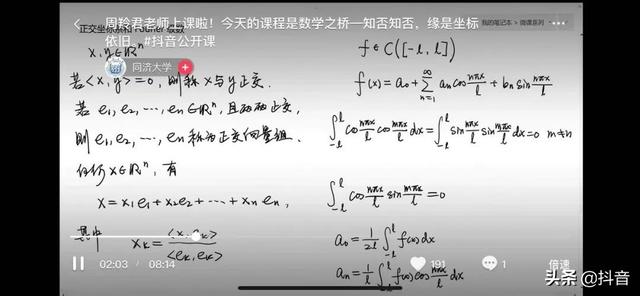 周羚君老师上课啦！今天的课程是数学之桥—知否知否，缘是坐标依旧，#抖音公开课
我的笔记本 > 微课系列
正交坐标系和 Fourier 级数
同济大学
x, y ∈ ℝⁿ
若 <x, y> = 0, 则称 x 与 y 正交.
若 e₁, e₂, ⋯, eₙ ∈ ℝⁿ, 且两两正交,
则 e₁, e₂, ⋯, eₙ 称为正交向量组.
任何 x ∈ ℝⁿ, 有
x = x₁e₁ + x₂e₂ + ⋯ + xₙeₙ,
其中
xₖ = <x, eₖ> / <eₖ, eₖ>
f ∈ C([-l, l])
f(x) = a₀ + ∑_{n=1}^{∞} aₙ cos nπx/l + bₙ sin nπx/l
∫_{-l}^{l} cos nπx/l cos mπx/l dx = ∫_{-l}^{l} sin nπx/l sin mπx/l dx = 0 m≠n
∫_{-l}^{l} cos nπx/l sin mπx/l = 0
a₀ = 1/2l ∫_{-l}^{l} f(x) dx
aₙ = 1/l ∫_{-l}^{l} f(x) cos nπx/l dx
02:03 / 08:14
191
1
倍速
头条 @抖音